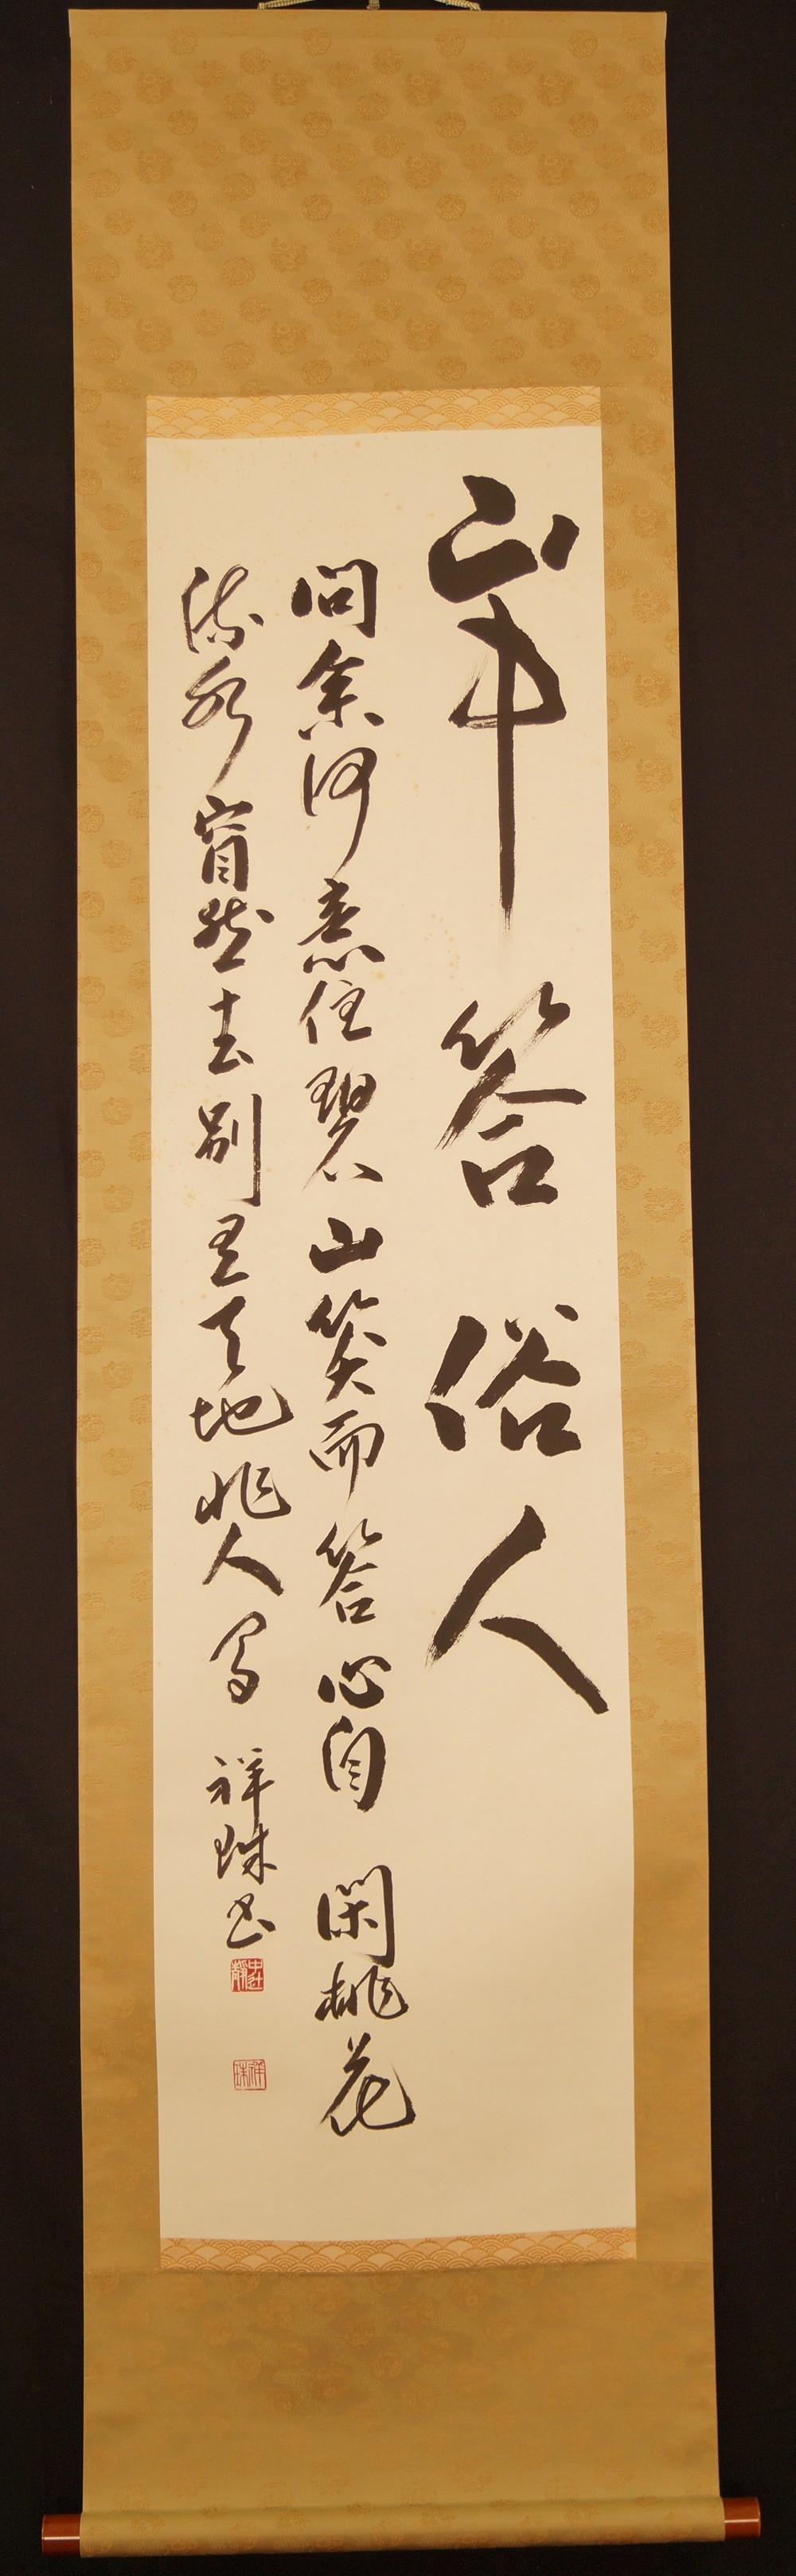 山中答俗人
問余何意住碧山笑而答心自閑桃花
流水窅然去別有天地非人間 祥珠書
祥珠